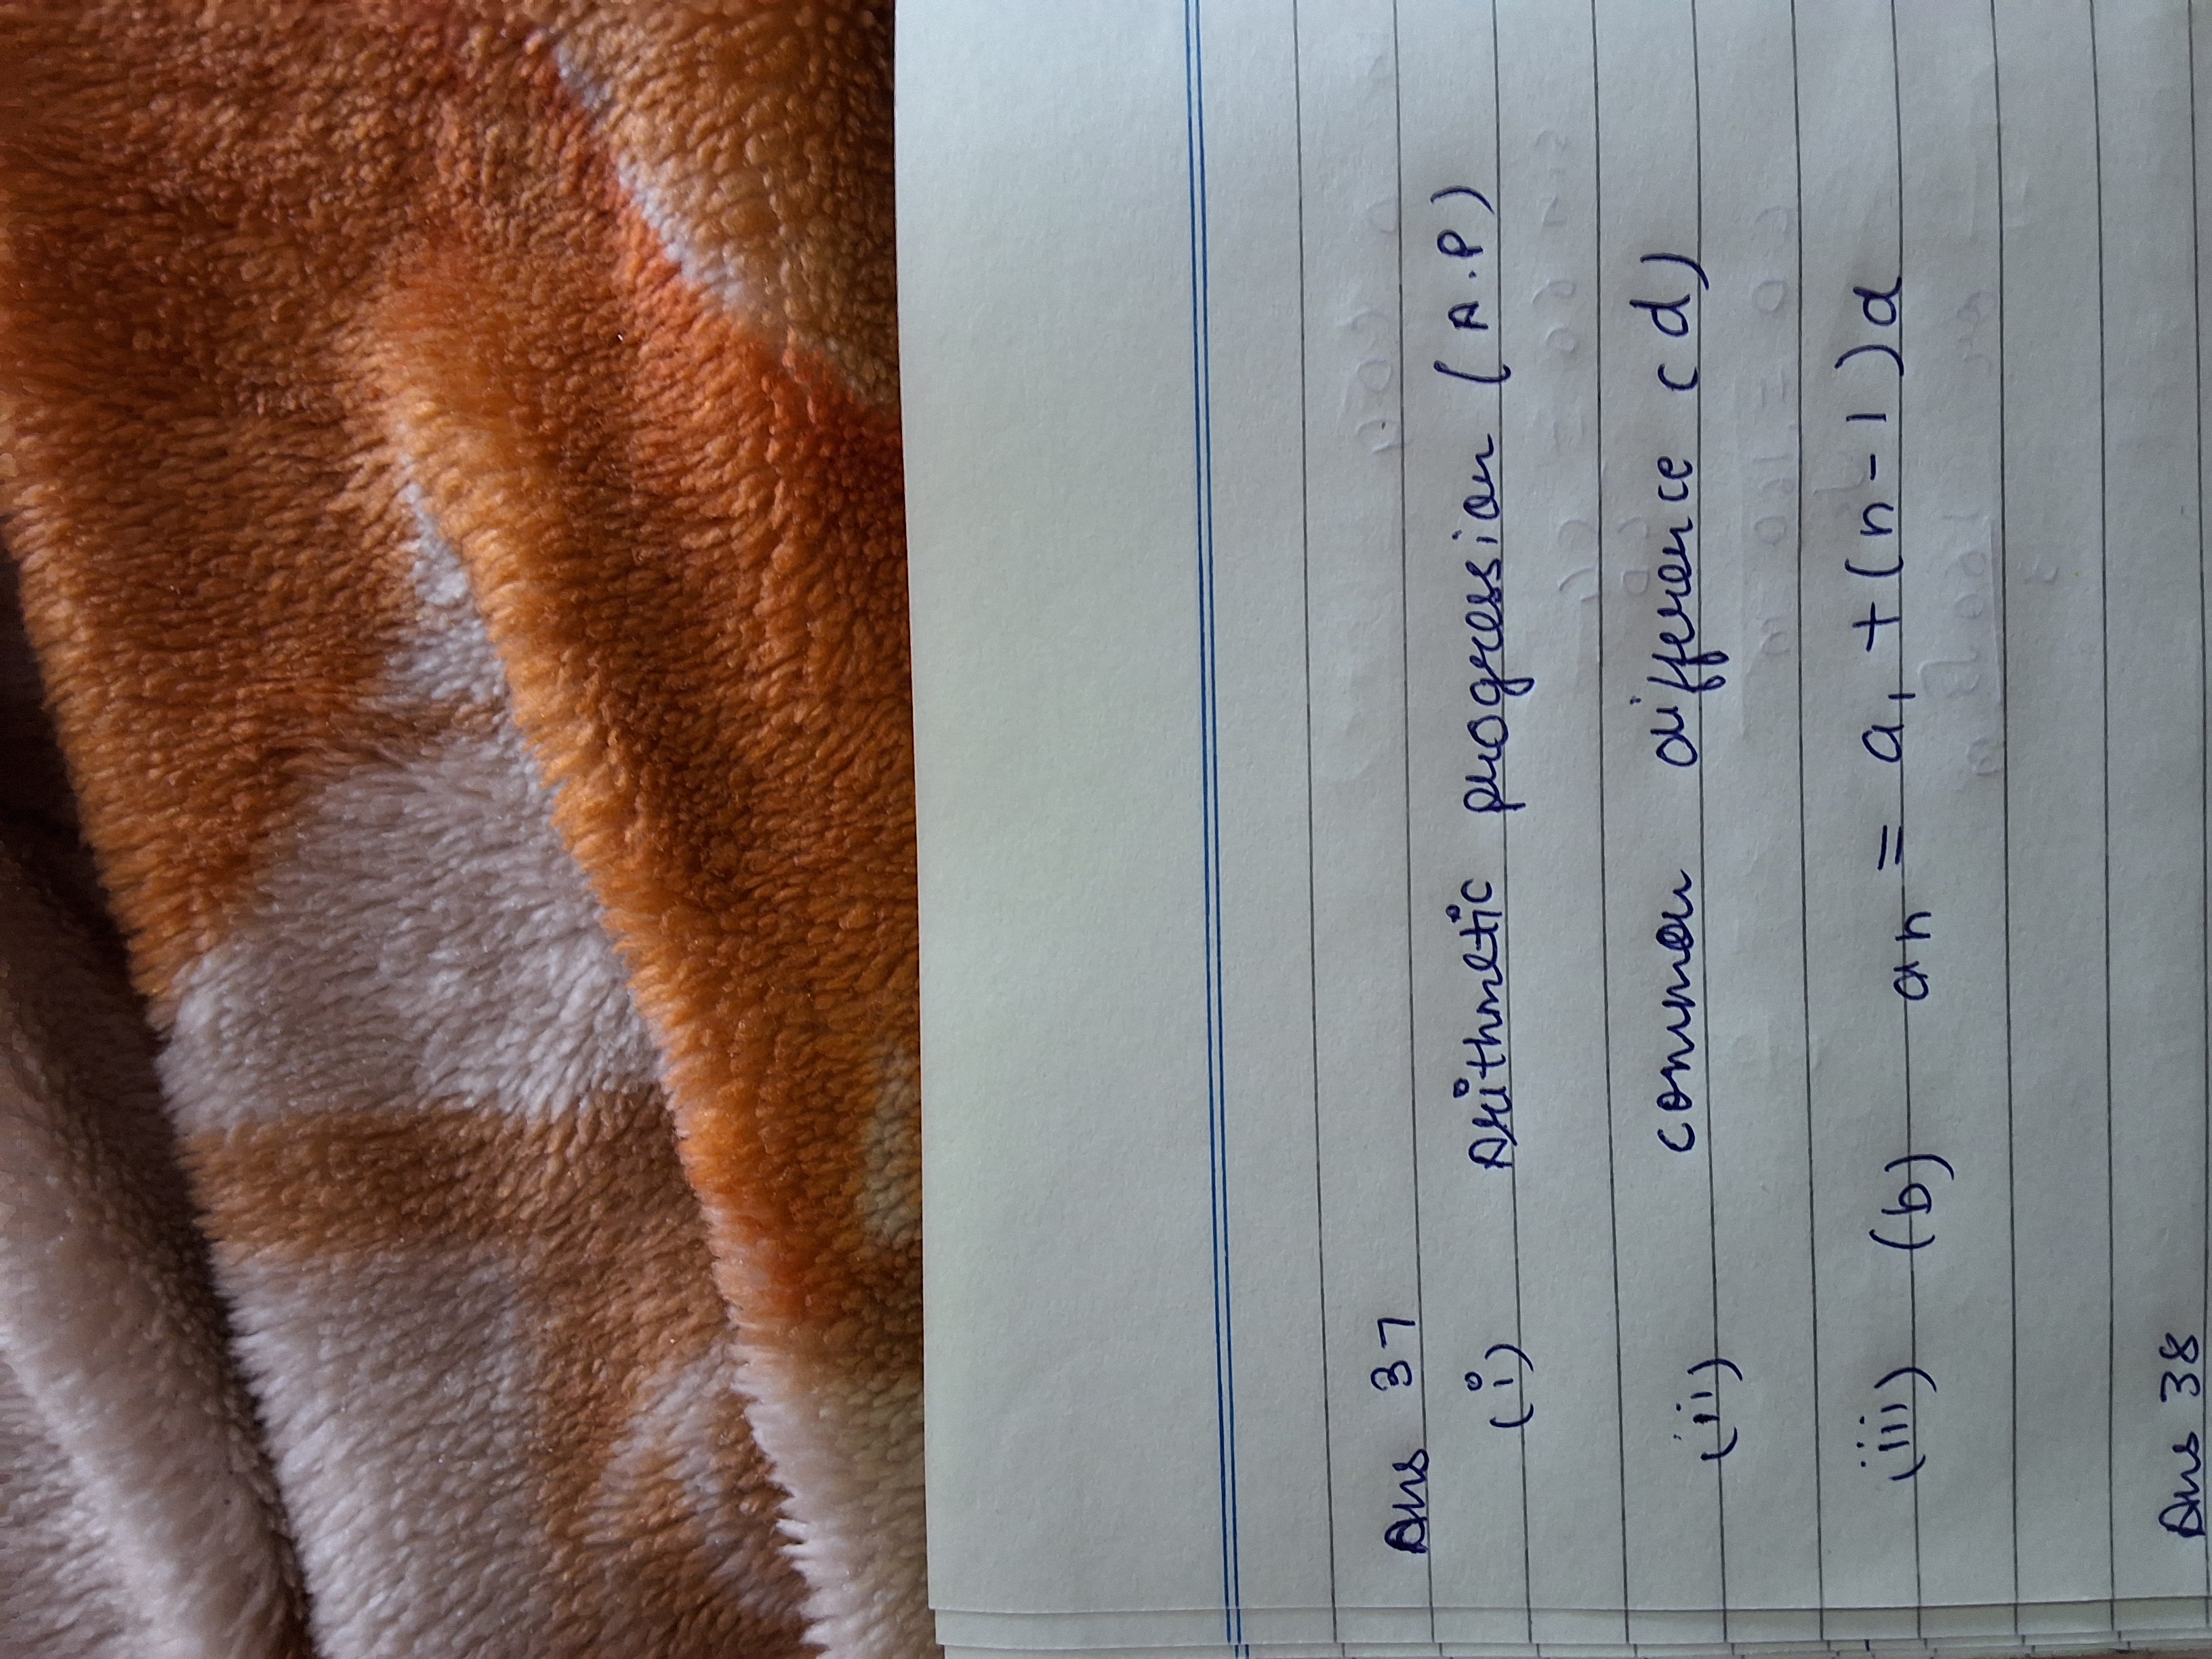 Ans 37
(i) Arithmetic progression (A.P)
(ii) common difference (d)
(iii) (b) an = a₁ + (n-1)d
Ans 38